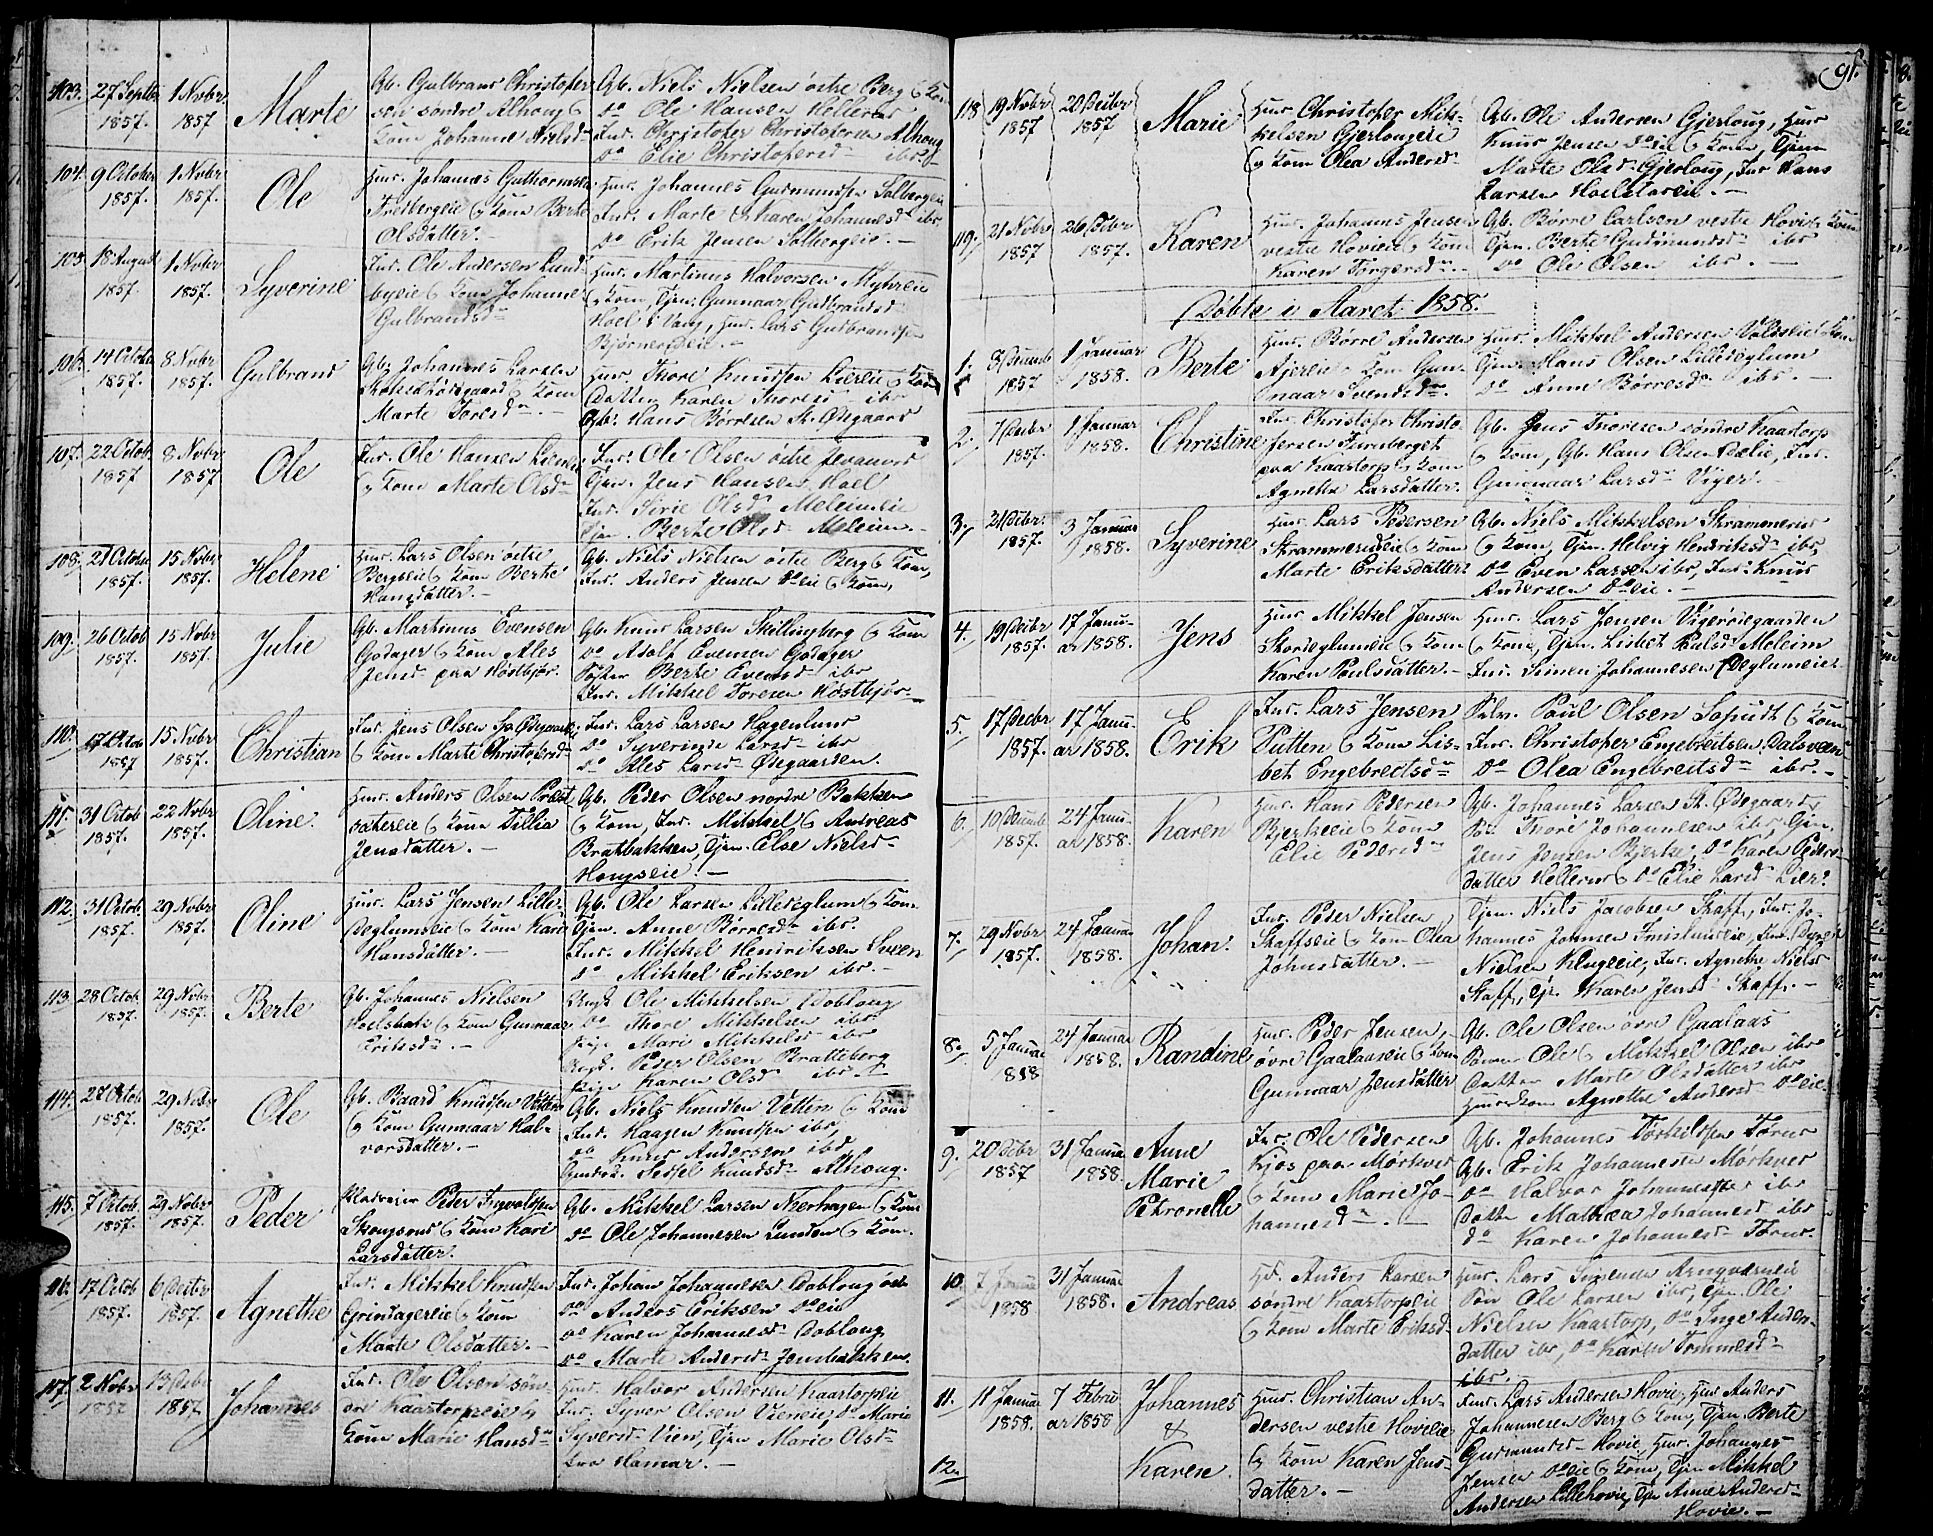 103. 27 Septbr 1857. 1 Novbr 1857 Marte
Gb. Gulbrand Christopher
sen søndre Alhoug &
Kone Johanne Nielsd
Gb. Niels Nielsen østre Berg & Kone
do Ole Hansen Hellerud
Ind. Christopher Christophersen Alhoug
do Elie Christophersd ibr
104. 9 October 1857. 1 Novbr 1857. Ole
Huus. Johannes Guthormsen
Fredbergeie & Kone Berte
Olsdatter.
Huus. Johannes Gudmundsen Solbergeie
Ind. Marte & Karen Johannesd ibr
do Erik Jensen Solbergeie. —
105 18 August 1857. 1 Novbr 1857. Syverine
Ind. Ole Andersen Lund-
byeie & Kone Johanne
Gulbrandsd
Huus. Martinus Halvorsen Myhreie
& Kone, Tjen. Gunnaar Gudbrandsd
Hoel i Vang, Huus. Lars Gudbrandsen
Bjørnerudeie. —
106. 14 October 1857. 8 Novbr 1857. Gulbrand
Gb. Johannes Larsen
& Kone
Marte Toresd —
Huus. Thore Knudsen Liereie & Kone
Datter Karen Thoresd ibr
Gb. Hans Børresen St. Ødegaard
107. 22 Octob. 1857 8 Novbr 1857 Ole
Ind. Ole Hansen
& Kone Marte Olsd
Ind. Ole Olsen østre Jevanord
Tjen. Jens Hansen Hoel
Ind. Sirie Olsd Meleimeie
Tjen. Berte Olsd Meleim. —
108. 21 October 1857. 15 Novbr 1857. Helene
Huus. Lars Olsen østre
Bergeie & Kone Berthe
Hansdatter. —
Gb. Niels Nielsen østre Berg & Kone,
Ind. Anders Jensen do eie & Kone,
109. 26 Octob 1857. 15 Novbr 1857. Julie
Gb. Martinus Evensen
Godager & Kone Ales
Jensd paa Høstbjør.
Gb. Knud Larsen Skillingberg & Kone
do Adolf Evensen Godager
Søster Berte Evensd ibr
Ind. Mikkel Toresen Høstbjør —
110. 17 Octob 1857 15 Novbr 1857. Christian
Ind. Jens Olsen St. Ødegaard
& Kone Marte Christophersd
Ind. Lars Larsen Hagenlund
do Syverinde Larsd ibr
do Ales Larsd Ødegaarden.
111. 31 Octob 1857. 22 Novbr 1857. Oline.
Huus. Anders Olsen Præst
sætereie & Kone Tillia
Jensdatter. —
Gb. Peder Olsen nordre Bakken
& Kone, Ind. Mikkel & Andreas
Bratbakken, Tjen. Else Nielsd
Hougseie. —
112. 31 Octob. 1857. 29 Novbr 1857. Oline
Huus. Lars Jensen Lille-
Deglumseie & Kone Kari
Hansdatter. —
Gb. Ole Larsen Lilledeglum & Kone.
Tjen. Anne Børresd ibr.
Ind. Mikkel Hendriksen Sveen
do Mikkel Eriksen ibr. —
113. 28 Octob. 1857. 29 Novbr 1857. Berte
Gb. Johannes Nielsen
Hoelsbak & Kone Gunnaar
Eriksd —
Ungk. Ole Mikkelsen Dobloug
do Thore Mikkelsen ibr
Pige Mari Mikkelsd ibr
Ungk. Peder Olsen Bratteberg
Pige Karen Olsd ibr
114. 27 Octob 1857. 29 Novbr 1857. Ole
Gb. Baard Knudsen Vetten
& Kone Gunnaar Hal-
vorsdatter. —
Gb. Niels Knudsen Vetten & Kone
Ind. Haagen Knudsen ibr,
do Knud Andersen ibr,
Sessel Knudsd Alhoug.
115. 7 Octob. 1857. 29 Novbr 1857. Peder
Peder Ingvaldsen
Skougsrud & Kone Kari
Larsdatter.
Gb. Mikkel Larsen Nerhagen & Kone
do Ole Johannesen Lunden & Kone.
116. 17 Octob 1857. 6 Decbr 1857. Agnethe
Ind. Mikkel Knudsen
Grindagereie & Kone
Marte Olsdatter. —
Ind. Johan Johannesen Doblougeie
do Anders Eriksen do eie
do Karen Johannesd Doblong
do Marte Andersd Jensbakken.
117. 2 Novbr 1857 13 Decbr 1857 Johannes
Ind. Ole Olsen søn-
dre Kaastorpeie &
Kone Marie Hansd
Huus. Halvor Andersen Kaastorpeie
Ind. Syver Olsen Vieneie, do Marie
Syversd Vien, Tjen Marie Olsd
Hamar. —
91.
118 19 Novbr 1857 20 Decbr 1857 Marie
Huus. Christopher Mik-
kelsen Gjerlougeie
& Kone Olea Andersd
Gb. Ole Andersen Gjerloug, Huus
Knud Jensen do eie & Kone, Tjen
Marte Olsd Gjerloug, Ind Hans
Larsen Hoelstadeie. —
119. 21 Novbr 1857 26 Decbr 1857. Karen
Huus. Johannes Jensen
vestre Hovieie & Kone
Karen Torgersd —
Gb. Børre Carlsen vestre Hovie & Kone
Tjen. Berte Gudmundsd ibr
do Ole Olsen ibr. —
Døbte i Aaret 1858.
1. 3 Decemb 1857 1 Januar 1858. Berte
Huus. Børre Andersen
Ajereie & Kone Gun-
naar Svendsd
Huus. Mikkel Andersen Voldseie & Kone
Tjen. Hans Olsen Lilledeglum
do Anne Børresd ibr. —
2. 7 Decbr 1857. 1 Januar 1858. Christine
Ind. Christopher Christo-
fersen Furuberget
paa Kaastorp & Kone
Agnethe Larsdatter.
Gb. Jens Thoresen søndre Kaastorp
& Kone, Gb. Hans Olsen Bælie, Ind.
Gunnaar Larsd Viger. —
3. 21 Decbr. 1857. 3 Januar 1858. Syverine
Huus. Lars Pedersen
Skramerudeie & Kone
Marte Eriksdatter.
Gb. Niels Mikkelsen Skramerud
& Kone, Tjen. Helvig Hendriksd ibr,
do Even Larsen ibr, Ind. Knud
Andersen do eie. —
4. 19 Decbr 1857. 17 Janu- ar 1858. Jens
Huus. Mikkel Jensen
Stordeglumeie & Kone
Karen Poulsdatter. —
Huus. Lars Jensen Vigerøiegaarden
& Kone, Tjen. Lisbet Poulsd Meleim
Ind. Simen Johannesen Deglumeie.
5. 17 Decbr 1857. 17 Janu- ar 1858. Erik
Ind. Lars Jensen
Putten & Kone Lis-
bet Engebretsd
Selv. Poul Olsen Sofudt & Kone
Ind. Christopher Engebretsen Dalsveen
do Olea Engebretsd ibr. —
6. 10 Decemb 1857. 24 Janu- ar 1858. Karen
Huus. Hans Pedersen
Bjerkeeie & Kone
Elie Pedersd
Gb. Johannes Larsen St. Ødegaard,
Thore Johannesen ibr. Tjen.
Jens Jensen Bjerke, do Karen Peders-
datter Hellerud & do Elie Larsd Lier.
7. 29 Novbr 1857. 24 Janua 1858. Johan.
Ind. Peder Nielsen
Skaffseie & Kone Olea
Johnsdatter. —
Tjen. Niels Jacobsen Skaff, Ind. Jo-
hannes Johnsen Smistuseie, Ind. Syver
Nielsen Klugeeie, Ind. Agnethe Nielsd
Skaff, Tjen Karen Jensd Skaff. —
8. 5 Janua 858 24 Janua 1858. Randine
Huus. Peder Jensen
øvre Gaalaaseie & Kone
Gunnaar Jensdatter
Gb. Ole Olsen øvre Gaalaas
Sønner Ole & Mikkel Olsen ibr
Datter Marte Olsdatter ibr
Huuskone Agnethe Andersd do eie.
9. 20 Decbr 1857 31 Janua 1858. Anne Marie Petronelle
Ind. Ole Pedersen
Kjos paa Mørkved
& Kone Marie Jo-
hannesd —
Gb. Johannes Torkildsen Torud
Gb. Erik Johannesen Mørkved
do Halvor Johannesen ibr
Datter Mathea Johannesd ibr
do Karen Johannesd Torud.
10. 7 Janua 1858 31 Janua 1858. Andreas
Hd. Anders Larsen
søndre Kaastorpeie
& Kone Marte Eriksd
Huus. Lars Simensen Arnqværneie
Søn Ole Larsen ibr, Tjen. Ole
Nielsen Kaastorp, do Inge Anders-
datter ibr, do Karen Tommesd
ibr.
11. 11 Janua 1858. 7 Febru- ar 1858 Johannes
&
12. Karen
Huus. Christian An-
dersen vestre Hovieie
& Kone Karen Jens-
datter. —
Ind. Lars Andersen Hovie, Huus Anders
Johannesen Berg & Kone, Tjen. Berte
Gudmundsd Hovie, Huus. Johannes
Jensen do eie & Kone, Tjen Mikkel
Andersen Lillehovie, Tjen Anne Andersd
Hovie. —